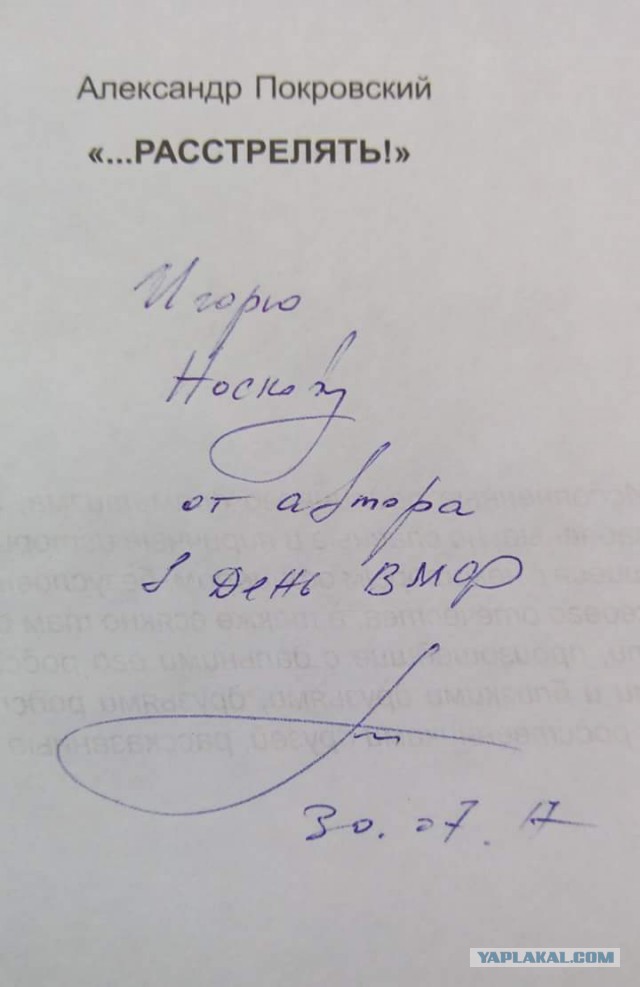 Александр Покровский
«...РАССТРЕЛЯТЬ!»
Игорю
Носкову
от автора
в День ВМФ
30.07.17
YAPLAKAL.COM